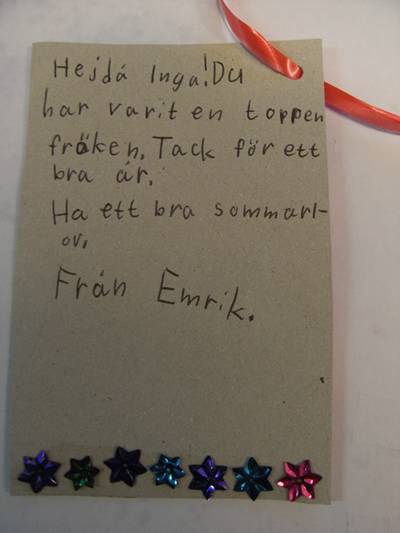 Hejdå Inga! Du
har varit en toppen
fröken. Tack för ett
bra år.
Ha ett bra sommarl-
ov.
Från Emrik.